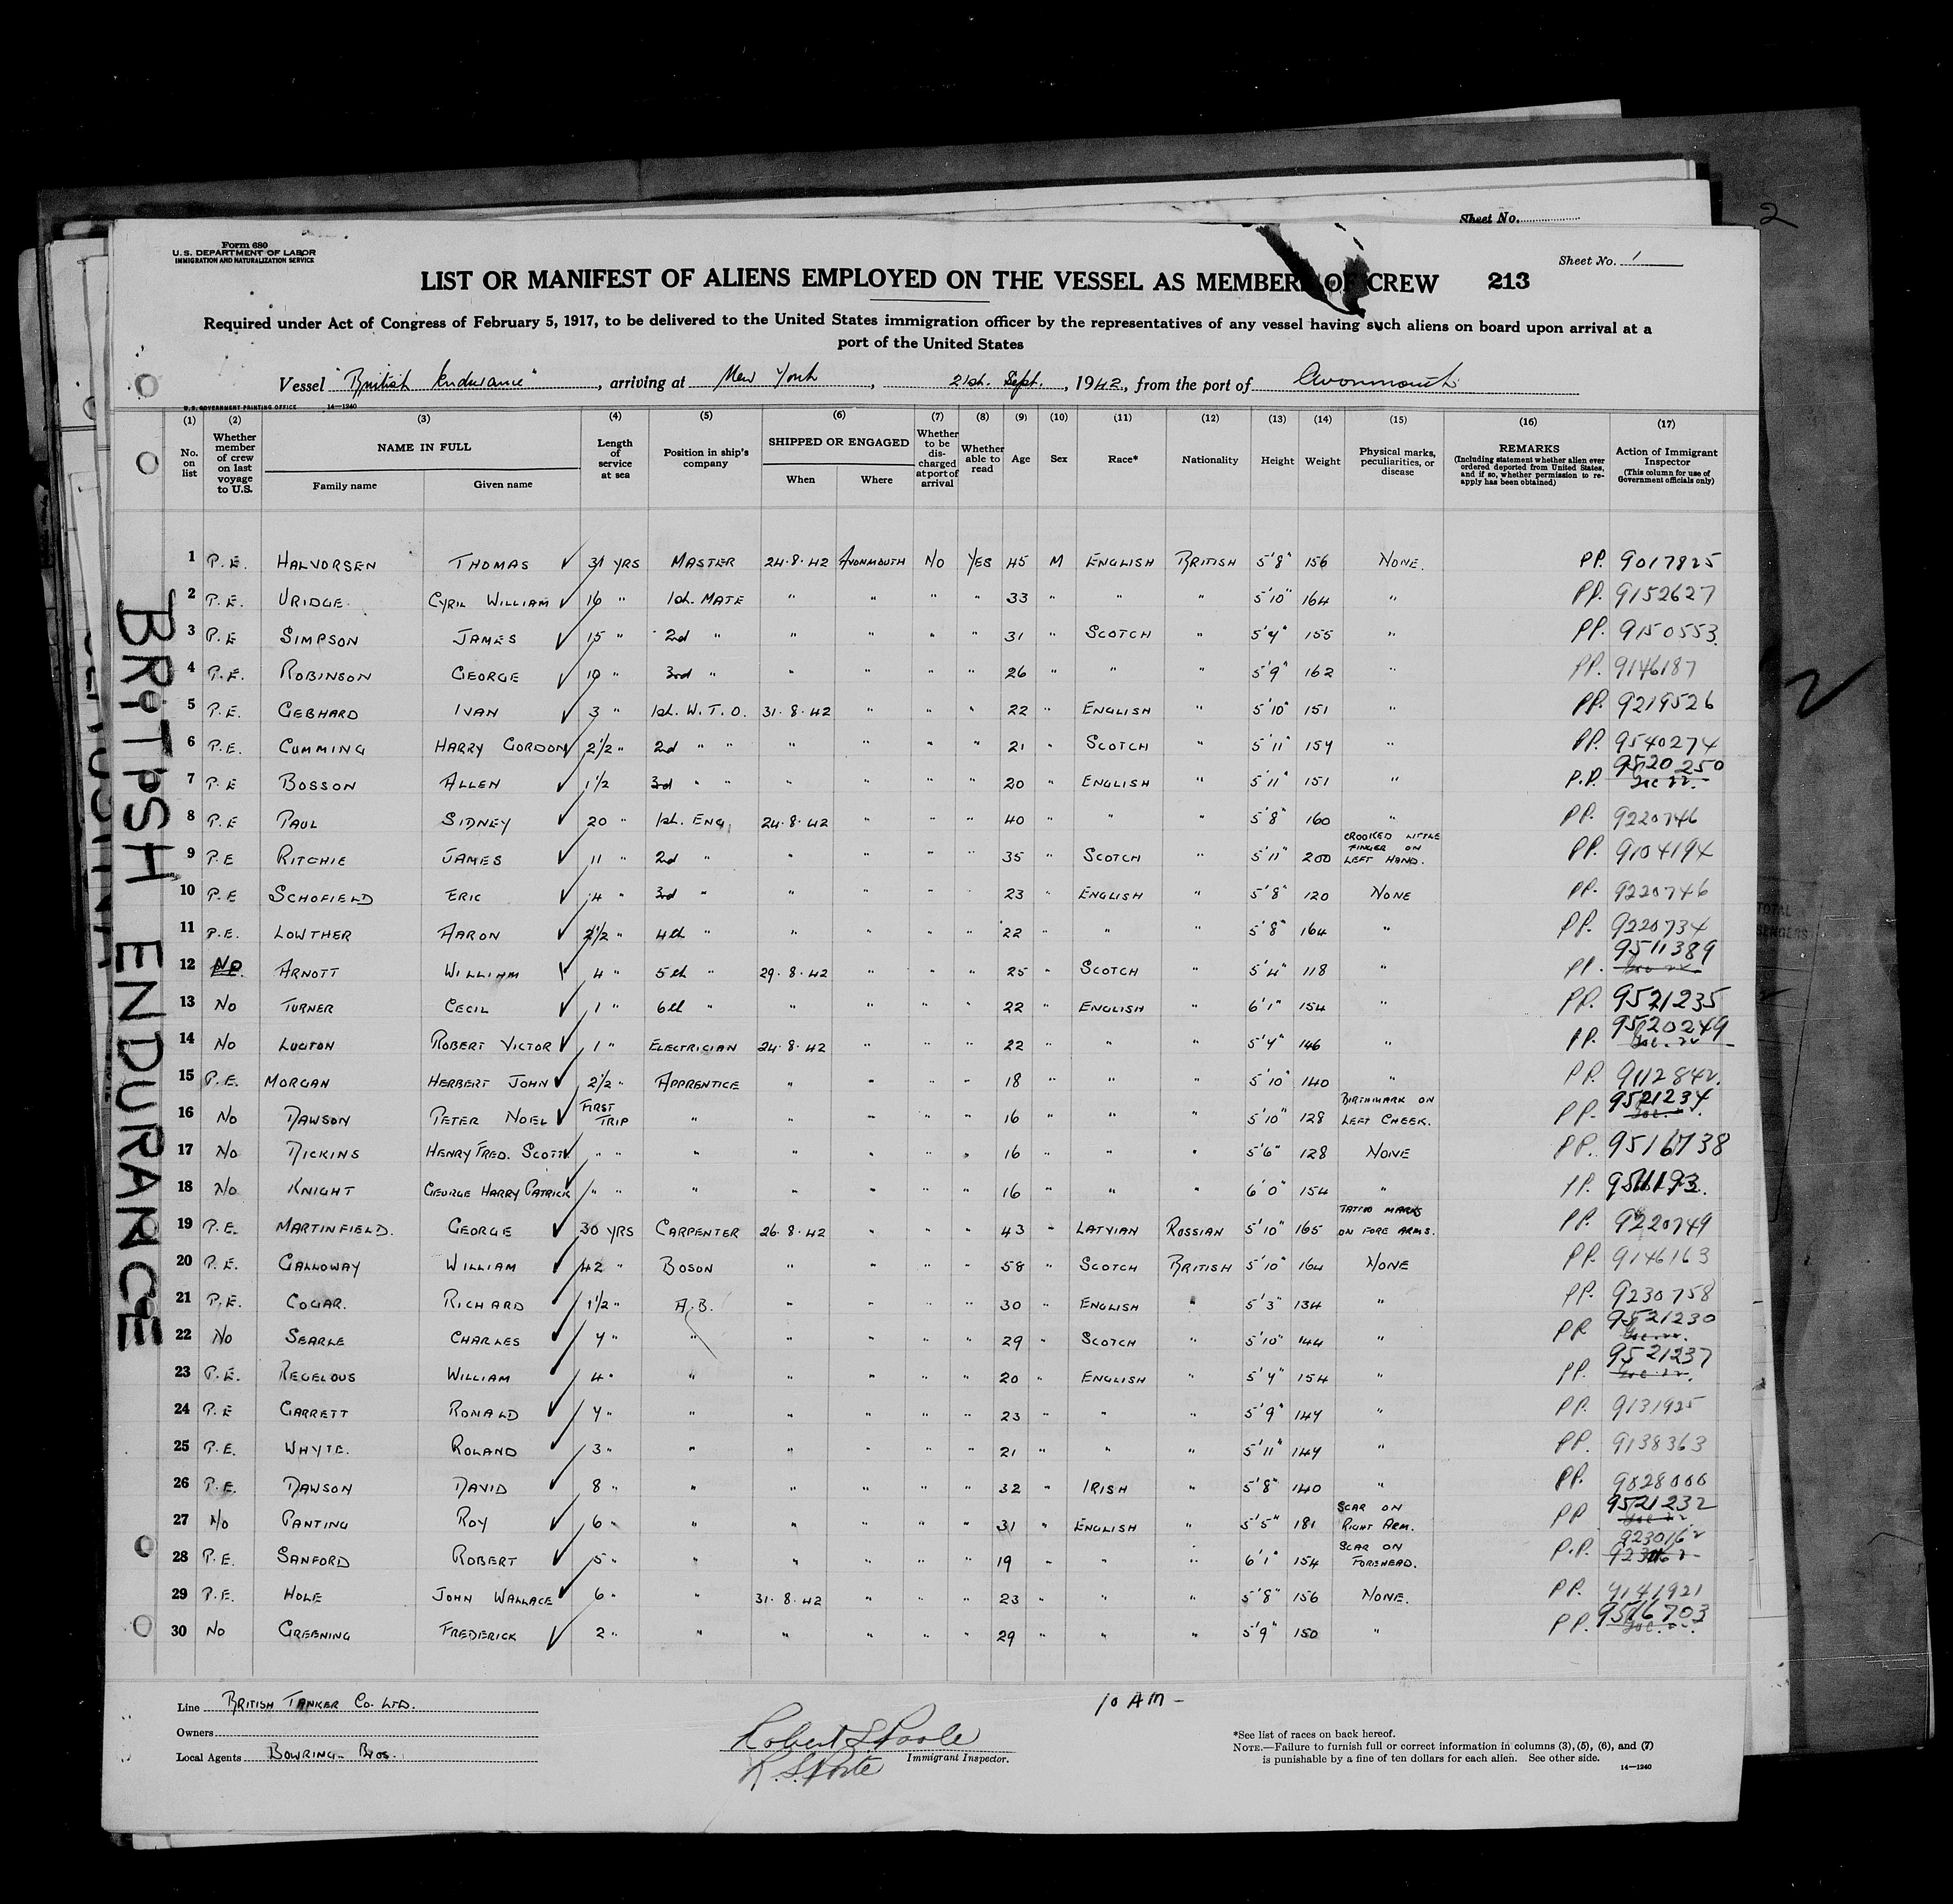 Sheet No.
2
Form 680
U.S. DEPARTMENT OF LABOR
IMMIGRATION AND NATURALIZATION SERVICE
Sheet No. 1
LIST OR MANIFEST OF ALIENS EMPLOYED ON THE VESSEL AS MEMBER OF CREW 213
Required under Act of Congress of February 5, 1917, to be delivered to the United States immigration officer by the representatives of any vessel having such aliens on board upon arrival at a
port of the United States
Vessel "British Endurance", arriving at New York, 21st. Sept., 1942, from the port of Avonmouth
U.S. GOVERNMENT PRINTING OFFICE 14—1240
(1) No. on list (2) Whether member of crew on last voyage to U.S. (3) NAME IN FULL Family name Given name (4) Length of service at sea (5) Position in ship's company (6) SHIPPED OR ENGAGED When Where (7) Whether to be discharged at port of arrival (8) Whether able to read (9) Age (10) Sex (11) Race* (12) Nationality (13) Height (14) Weight (15) Physical marks, peculiarities, or disease (16) REMARKS (Including statement whether alien ever ordered deported from United States, and if so, whether permission to re-apply has been obtained) (17) Action of Immigrant Inspector (This column for use of Government officials only)
1 P.E. HALVORSEN THOMAS ✓ 31 YRS MASTER 24.8.42 AVONMOUTH NO YES 45 M ENGLISH BRITISH 5'8" 156 NONE. PP. 9017825
2 P.E. URIDGE. CYRIL WILLIAM ✓ 16 " 1st. MATE " " " " 33 " " " 5'10" 164 " PP. 9152627
3 P.E SIMPSON JAMES ✓ 15 " 2nd " " " " " 31 " SCOTCH " 5'4" 155 " PP. 9150553
4 P.E. ROBINSON GEORGE ✓ 10 " 3rd " " " " " 26 " " " 5'9" 162 " PP. 9146187
5 P.E. GEBHARD IVAN ✓ 3 " 1st. W.T.O. 31.8.42 " " " 22 " ENGLISH " 5'10" 151 " PP. 9219526
6 P.E. CUMMING HARRY GORDON ✓ 2½ " 2nd " " " " " " 21 " SCOTCH " 5'11" 154 " PP. 9540274
7 P.E BOSSON ALLEN ✓ 1½ 3rd " " " " " " 20 " ENGLISH " 5'11" 151 " P.P. 9520250
8 P.E PAUL SIDNEY ✓ 20 " 1st. ENG. 24.8.42 " " " 40 " " " 5'8" 160 " PP. 9220746
9 P.E RITCHIE JAMES ✓ 11 " 2nd " " " " " 35 " SCOTCH " 5'11" 200 CROOKED LITTLE FINGER ON LEFT HAND. PP. 9104194
10 P.E SCHOFIELD ERIC ✓ 4 " 3rd " " " " " 23 " ENGLISH " 5'8" 120 NONE PP. 9220746
11 P.E. LOWTHER AARON ✓ 2½ " 4th " " " " " 22 " " " 5'8" 164 " PP. 9220734
12 NO ARNOTT WILLIAM ✓ 4 " 5th " 29.8.42 " " " 25 " SCOTCH " 5'4" 118 " PP. 9511389
13 NO TURNER CECIL ✓ 1 " 6th " " " " " 22 " ENGLISH " 6'1" 154 " PP. 9521235
14 NO LUGTON ROBERT VICTOR ✓ 1 " ELECTRICIAN 24.8.42 " " " 22 " " " 5'4" 146 " PP. 9520249
15 P.E. MORGAN HERBERT JOHN ✓ 2½ " APPRENTICE " " " " 18 " " " 5'10" 140 " PP. 9112842.
16 NO DAWSON PETER NOEL ✓ FIRST TRIP " " " " " 16 " " " 5'10" 128 BIRTHMARK ON LEFT CHEEK. PP. 9521234
17 NO DICKINS HENRY FRED. SCOTT ✓ " " " " " " " 16 " " " 5'6" 128 NONE PP. 9516738
18 NO KNIGHT GEORGE HARRY PATRICK ✓ " " " " " " " 16 " " " 6'0" 154 " PP.
19 P.E. MARTINFIELD. GEORGE ✓ 30 YRS CARPENTER 26.8.42 " " " 43 " LATVIAN RUSSIAN 5'10" 165 TATTO MARKS ON FORE ARMS. PP. 9220749
20 P.E. GALLOWAY WILLIAM ✓ 42 " BOSON " " " " 58 " SCOTCH BRITISH 5'10" 164 NONE PP. 9146163
21 P.E. COGAR. RICHARD ✓ 1½ " A.B. " " " " 30 " ENGLISH " 5'3" 134 " PP. 9230758
22 NO SEARLE CHARLES ✓ 4 " " " " " " 29 " SCOTCH " 5'10" 144 " PP 9521230
23 P.E. REGELOUS WILLIAM ✓ 4 " " " " " " 20 " ENGLISH " 5'4" 154 " PP. 9521237
24 P.E GARRETT RONALD ✓ 4 " " " " " " 23 " " " 5'9" 147 " PP. 9131925
25 P.E. WHYTE. ROLAND ✓ 3 " " " " " " 21 " " " 5'11" 149 " PP. 9138363
26 P.E. DAWSON DAVID ✓ 8 " " " " " " 32 " IRISH " 5'8" 140 " PP. 9028000
27 NO PANTING ROY ✓ 6 " " " " " " 31 " ENGLISH " 5'5" 181 SCAR ON RIGHT ARM. PP 9521232
28 P.E. SANFORD ROBERT ✓ 5 " " " " " " 19 " " " 6'1" 154 SCAR ON FOREHEAD. P.P. 9230162
29 P.E. HOLE JOHN WALLACE ✓ 6 " " 31.8.42 " " " 23 " " " 5'8" 156 NONE. PP. 9141921
30 NO GREENING FREDERICK ✓ 2 " " " " " " 29 " " " 5'9" 150 " PP. 9516703
BRITISH ENDURANCE
Line BRITISH TANKER CO. LTD.
Owners
Local Agents BOWRING BROS.
10 AM -
Robert S. Poole
Immigrant Inspector.
*See list of races on back hereof.
NOTE.—Failure to furnish full or correct information in columns (3), (5), (6), and (7)
is punishable by a fine of ten dollars for each alien. See other side.
14—1240